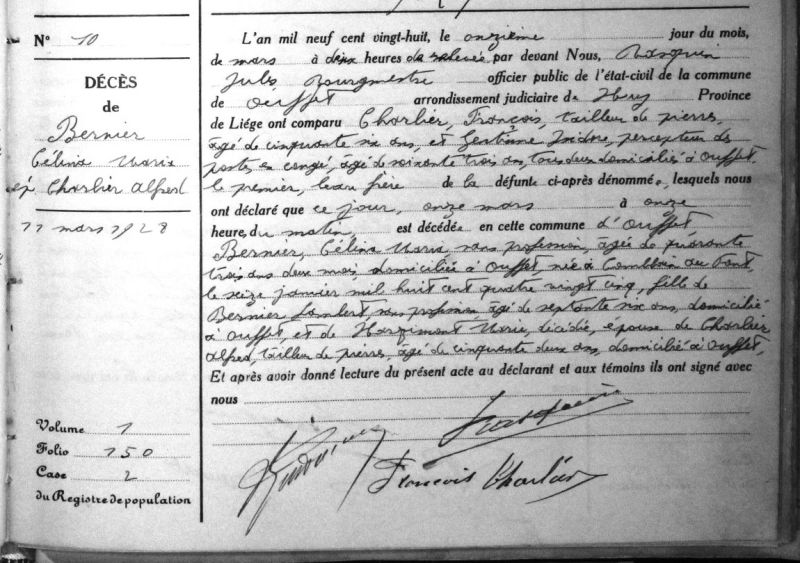 N° 10
DÉCÈS
de
Bernier
Célina Maria
ép. Charlier Alfred
11 mars 1928
Volume 1
Folio 150
Case 2
du Registre de population
L'an mil neuf cent vingt-huit, le onzième jour du mois,
de mars à deux heures de relevée par devant Nous,
Jules Bourgmestre officier public de l'état-civil de la commune
de Ouffet arrondissement judiciaire de Huy Province
de Liége ont comparu Charlier, François, tailleur de pierres,
âgé de cinquante six ans, et Isidore, percepteur des
postes en congé, âgé de soixante trois ans, tous deux domiciliés à Ouffet,
le premier, beau frère de la défunte ci-après dénommée, lesquels nous
ont déclaré que ce jour, onze mars à onze
heure, du matin, est décédée en cette commune d'Ouffet,
Bernier, Célina Maria, sans profession, âgée de quarante
trois ans deux mois domiciliée à Ouffet, née à Comblain au Pont,
le seize janvier mil huit cent quatre vingt cinq, fille de
Bernier Lambert, sans profession, âgé de septante six ans, domicilié
à Ouffet, et de Marie, décédée, épouse de Charlier
Alfred, tailleur de pierre, âgé de cinquante deux ans, domicilié à Ouffet,
Et après avoir donné lecture du présent acte au déclarant et aux témoins ils ont signé avec
nous
François Charlier